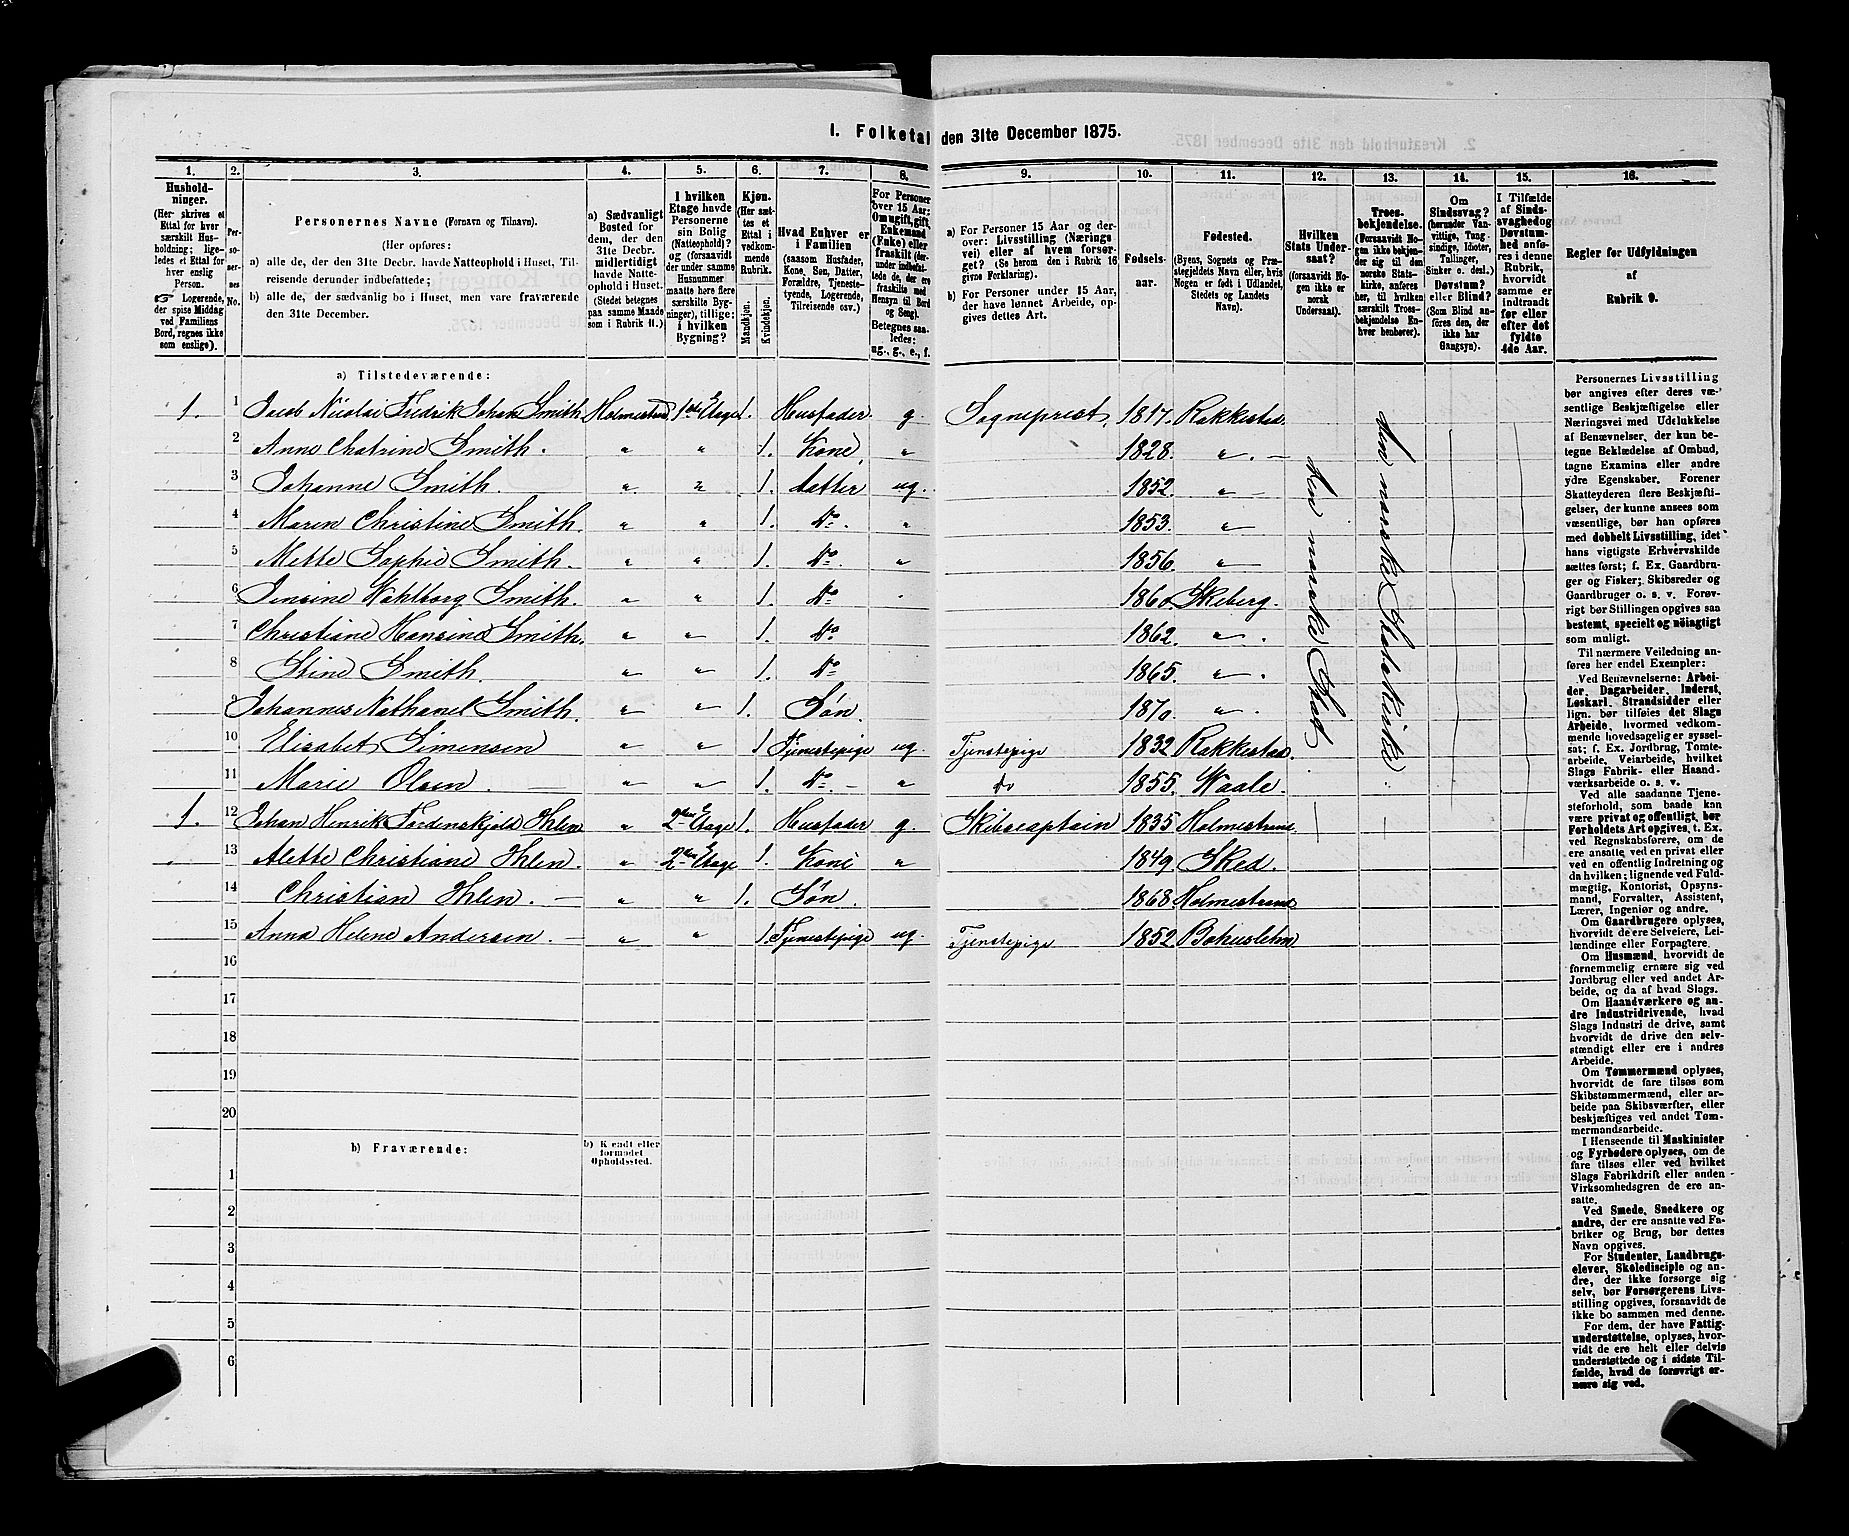 I. Folketal den 31te December 1875.
1. 2. 3. 4. 5. 6. 7. 8. 9. 10. 11. 12. 13. 14. 15. 16.
Hushold-
ninger.
(Her skrives et
Ettal for hver
særskilt Hus-
holdning; lige-
ledes et Ettal for
hver enslig
Person.
☞ Logerende,
der spise Middag
ved Familiens
Bord, regnes ikke
som enslige).
Per-
so-
ner-
nes
No.
Personernes Navne (Fornavn og Tilnavn).
(Her opføres:
a) alle de, der den 31te Decbr. havde Natteophold i Huset, Til-
reisende derunder indbefattede;
b) alle de, der sædvanlig bo i Huset, men vare fraværende
den 31te December.
a) Sædvanligt
Bosted for
dem, der den
31te Decbr.
midlertidigt
havde Natte-
ophold i Huset.
(Stedet betegnes
paa samme Maade
som i Rubrik 11.)
I hvilken
Etage havde
Personerne
sin Bolig
(Natteophold)?
og (forsaavidt
der under samme
Husnummer
maatte høre flere
særskilte Byg-
ninger), tillige:
i hvilken
Bygning?
Kjøn.
(Her sæt-
tes et
Ettal i
vedkom-
mende
Rubrik.
Mandkjøn.
Kvindekjøn.
Hvad Enhver er
i Familien
(saasom Husfader,
Kone, Søn, Datter,
Forældre, Tjeneste-
tyende, Logerende,
Tilreisende osv.)
For Personer
over 15 Aar;
Om ugift, gift,
Enkemand
(Enke) eller
fraskilt (der-
under indbefat-
tede de, der ere
fraskilte med
Hensyn til Bord
og Seng).
Betegnes saa-
ledes:
ug., g., e., f.
a) For Personer 15 Aar og der-
over: Livsstilling (Nærings
vei) eller af hvem forsør-
get? (Se herom den i Rubrik 16
givne Forklaring).
b) For Personer under 15 Aar,
der have lønnet Arbeide, op-
gives dettes Art.
Fødsels-
aar.
Fødested.
(Byens, Sognets og Præ-
stegjeldets Navn eller, hvis
Nogen er født i Udlandet,
Stedets og Landets
Navn).
Hvilken
Stats Under-
saat?
(forsaavidt No-
gen ikke er
norsk
Undersaat).
Troes-
bekjendelse.
(Forsaavidt No-
gen ikke beken-
der sig til den
norske Stats-
kirke, anføres
her, til hvilken
særskilt Troes-
bekjendelse En-
hver henhører).
Om
Sindssvag?
(herunder Van-
vittige, Tung-
sindige, Idioter,
Tullinger,
Sinker o. desl.)
Døvstum?
eller Blind?
(Som Blind an-
føres den, der
ikke har
Gangsyn).
I Tilfælde
af Sinds-
svaghed og
Døvstum-
hed anfø-
res i denne
Rubrik,
hvorvidt
samme er
indtraadt
før eller
efter det
fyldte
4de Aar.
Regler for Udfyldningen
af
Rubrik 9.
a) Tilstedeværende:
1. 1 Jacob Nicolai Fredrik Johan Smith Holmestrand 1ste Etage 1. Husfader g. Sogneprest, 1817. Rakkestad
2 Anne Chatrine Smith. " " 1. Kone, " 1828. " —
3 Johanne Smith. " " 1. Datter ug. 1852. " —
4 Maren Christine Smith. " " 1. do. " 1853. "
5 Mette Sophie Smith. " " 1. do. " 1856. "
6 Jensine Wahlborg Smith. " " 1. do. " 1860. Skeberg.
7 Christiane Hansine Smith. " " 1. do 1862. " .
8 Stine Smith. " " 1. do 1865. " .
9 Johannes Nathanel Smith. " " 1. Søn. 1870. " .
10 Elisabet Simensen " " 1. Tjenestepige ug. Tjenstepige 1832 Rakkestad
11 Marie Olsen. — " " 1. do. — " do 1855. Waale.
1. 12 Johan Henrik Tordenskjold Ihlen " 2den Etage 1. Husfader g. Skibscaptain 1835 Holmestrand —
13 Alette Christiane Ihlen. " 2den Etage 1. Kone " 1849. Sked.
14 Christian Ihlen. — " " 1. Søn. 1868. Holmestrand
15 Anna Helene Andersen. — " " 1. Tjenestepige ug. Tjenstepige 1852
Den norske Stat
Den norske Statskirke
16
17
18
19
20
b) Fraværende:
b) Kjendt eller
formodet
Opholdssted.
1
2
3
4
5
6
Personernes Livsstilling
bør angives efter deres væ-
sentlige Beskjæftigelse eller
Næringsvei med Udelukkelse
af Benævnelser, der kun be-
tegne Beklædelse af Ombud,
tagne Examina eller andre
ydre Egenskaber. Forener
Skatteyderen flere Beskjæfti-
gelser, der kunne ansees som
væsentlige, bør han opføres
med dobbelt Livsstilling, idet
hans vigtigste Erhvervskilde
sættes først; f. Ex. Gaardbru-
ger og Fisker; Skibsreder og
Gaardbruger o. s. v. Forøv-
rigt bør Stillingen opgives saa
bestemt, specielt og nøiagtigt
som muligt.
Til nærmere Veiledning an-
føres her endel Exempler:
Ved Benævnelserne: Arbei-
der, Dagarbeider, Inderst,
Løskarl, Strandsidder eller
lign. bør tilføies det Slags
Arbeide, hvormed vedkom-
mende hovedsagelig er syssel-
sat; f. Ex. Jordbrug, Tomte-
arbeide, Veiarbeide, hvilket
Slags Fabrik- eller Haand-
værksarbeide o. s. v.
Ved alle saadanne Tjene-
steforhold, som baade kan
være privat og offentligt, bør
Forholdets Art opgives, t. Ex.
ved Regnskabsførere, om de
ere ansatte ved en privat eller
ved en offentlig Indretning og
da hvilken; lignende ved Fuld-
mægtig, Kontorist, Opsyns-
mand, Forvalter, Assistent,
Lærer, Ingeniør og andre.
Om Gaardbrugere oplyses,
hvorvidt de ere Selveiere, Lei-
lændinge eller Forpagtere.
Om Husmænd, hvorvidt de
fornemmelig ernære sig ved
Jordbrug eller ved andet Ar-
beide, og da af hvad Slags.
Om Haandværkere og an-
dre Industridrivende, hvad
Slags Industri de drive, samt
hvorvidt de drive den selv-
stændigt eller ere i andres
Arbeide.
Om Tømmermænd oplyses,
hvorvidt de fare tilsøs som
Skibstømmermænd, eller ar-
beide paa Skibsværfter, eller
beskjæftiges ved andet Tøm-
mermandsarbeide.
I Henseende til Maskinister
og Fyrbødere oplyses, om de
fare tilsøs eller ved hvilket
Slags Fabrikdrift eller anden
Virksomhedsgren de ere an-
satte.
Ved Smede, Snedkere og
andre, der ere ansatte ved Fa-
briker og Brug, bør dettes
Navn opgives.
For Studenter, Landbrugs-
elever, Skoledisciple og an-
dre, der ikke forsørge sig
selv, bør Forsørgerens Livs-
stilling opgives, forsaavidt de
ikke bo sammen med denne.
For dem, der have Fattig-
understøttelse, oplyses, hvor-
vidt de ere helt eller delvis
understøttede og i sidste Til-
fælde, hvad de forøvrigt er-
nære sig ved.